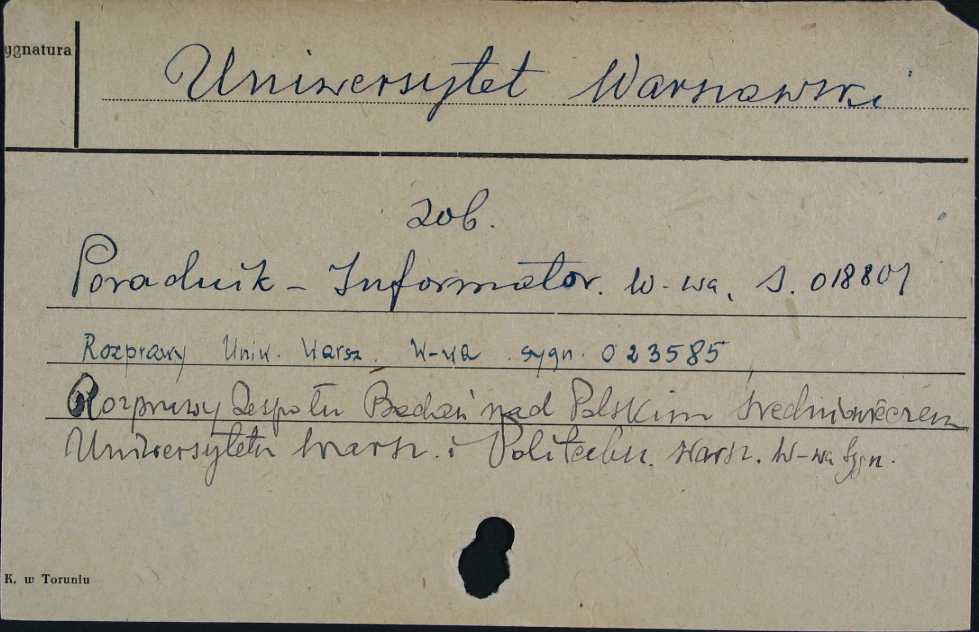 ygnatura
Uniwersytet Warszawski
zob.
Poradnik - Informator. W-wa, S. 018801
Rozprawy Uniw. Warsz. W-wa sygn. 023585
Rozprawy Zespołu Badań nad Polskim Średniowieczem
Uniwersytetu Warsz. i Politechn. Warsz. W-wa Sygn.
K. w Toruniu